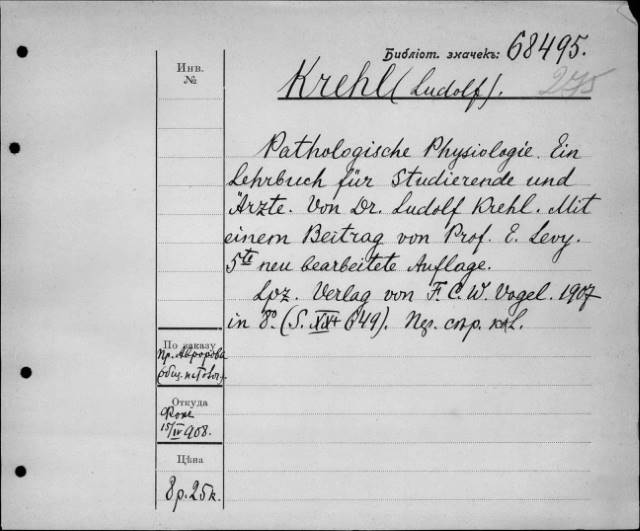 Библіот. значекъ: 68495.
Инв. №
Krehl (Ludolf). 275
Pathologische Physiologie. Ein
Lehrbuch für Studierende und
Ärzte. Von Dr. Ludolf Krehl. Mit
einem Beitrag von Prof. E. Levy.
5te neu bearbeitete Auflage.
Lpz. Verlag von F. C. W. Vogel. 1907
in 8º. (S. XIX + 649).
По заказу
Пр. Авророва
Откуда
15/IV 908.
Цѣна
8 р. 25 к.